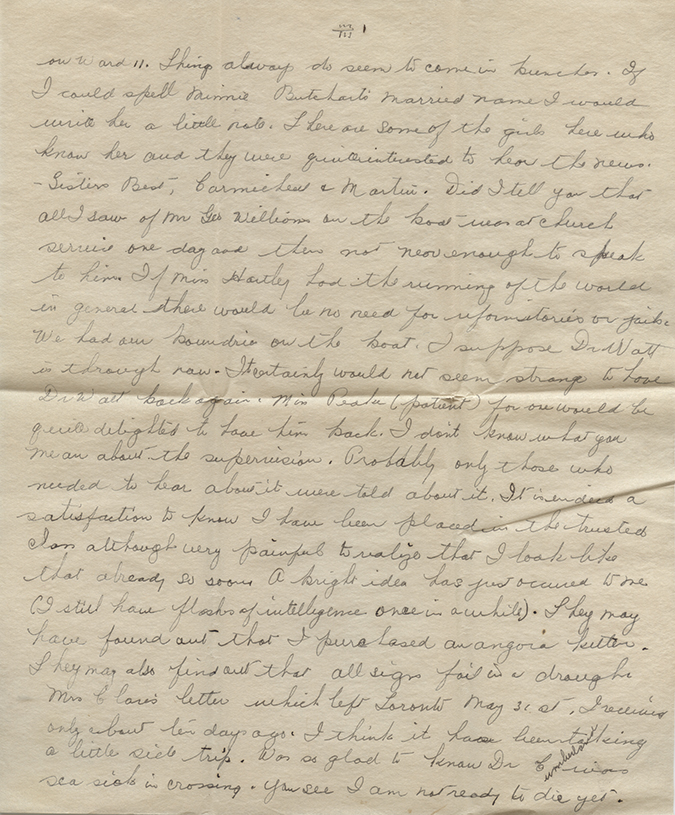 on Ward 11. Things alway do seem to come in bunches. If
I could spell Minnie Butchart's married name I would
write her a little note. There are some of the girls here who
know her and they were quite interested to hear the news.
- Sisters Best, Carmichael & Martin. Did I tell you that
all I saw of Mr Geo Williams on the boat was at church
service one day and then not near enough to speak
to him. If Miss Hartley had the running of the world
in general there would be no need for reformatories or jails.
We had our boundrie on the boat. I suppose Dr Watt
is through now. It certainly would not seem strange to have
Dr Watt back again. Miss (patient) for one would be
quite delighted to have him back. I don't know what you
mean about the supervision. Probably only those who
needed to hear about it were told about it. It is indeed a
satisfaction to know I have been placed in the trusted
Class although very painful to realize that I look like
that already so soon. A bright idea has just occured to me
(I still have flashes of intelligence once in a while). They may
have found out that I purchased an angora kitten.
They may also find out that all signs fail in a drought
Mrs Clare's letter which left Toronto May 31 st, I received
only about ten days ago. I think it has been taking
a little side trip. Was so glad to know Dr was
sea sick in crossing. You see I am not ready to die yet.